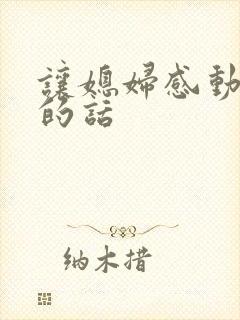 讓媳婦感動
的話
纳木措